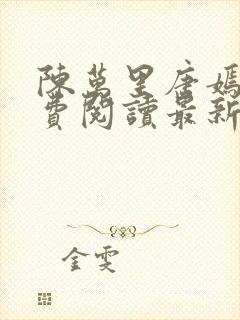 陳萬里唐嫣
費閱讀最新
金雯